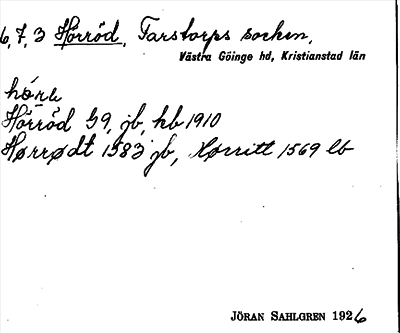 6,7,3 Hörröd, Farstorps socken,
Västra Göinge hd, Kristianstad län
Hörröd G9, jb, kb 1910
Hørrødt 1583 jb, Hørritt 1569 lb
JÖRAN SAHLGREN 1926